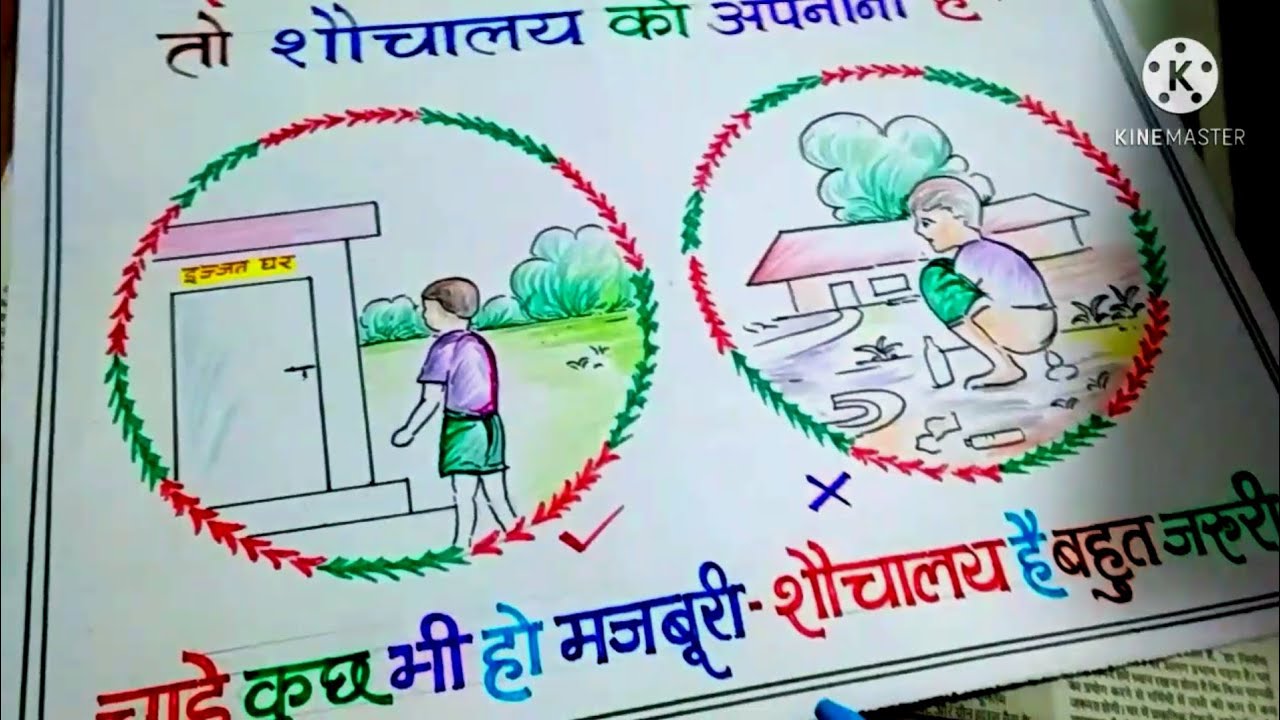 तो शौचालय को अपनाना है
K
KINEMASTER
इज्जत घर
चाहे कुछ भी हो मजबूरी - शौचालय है बहुत जरूरी